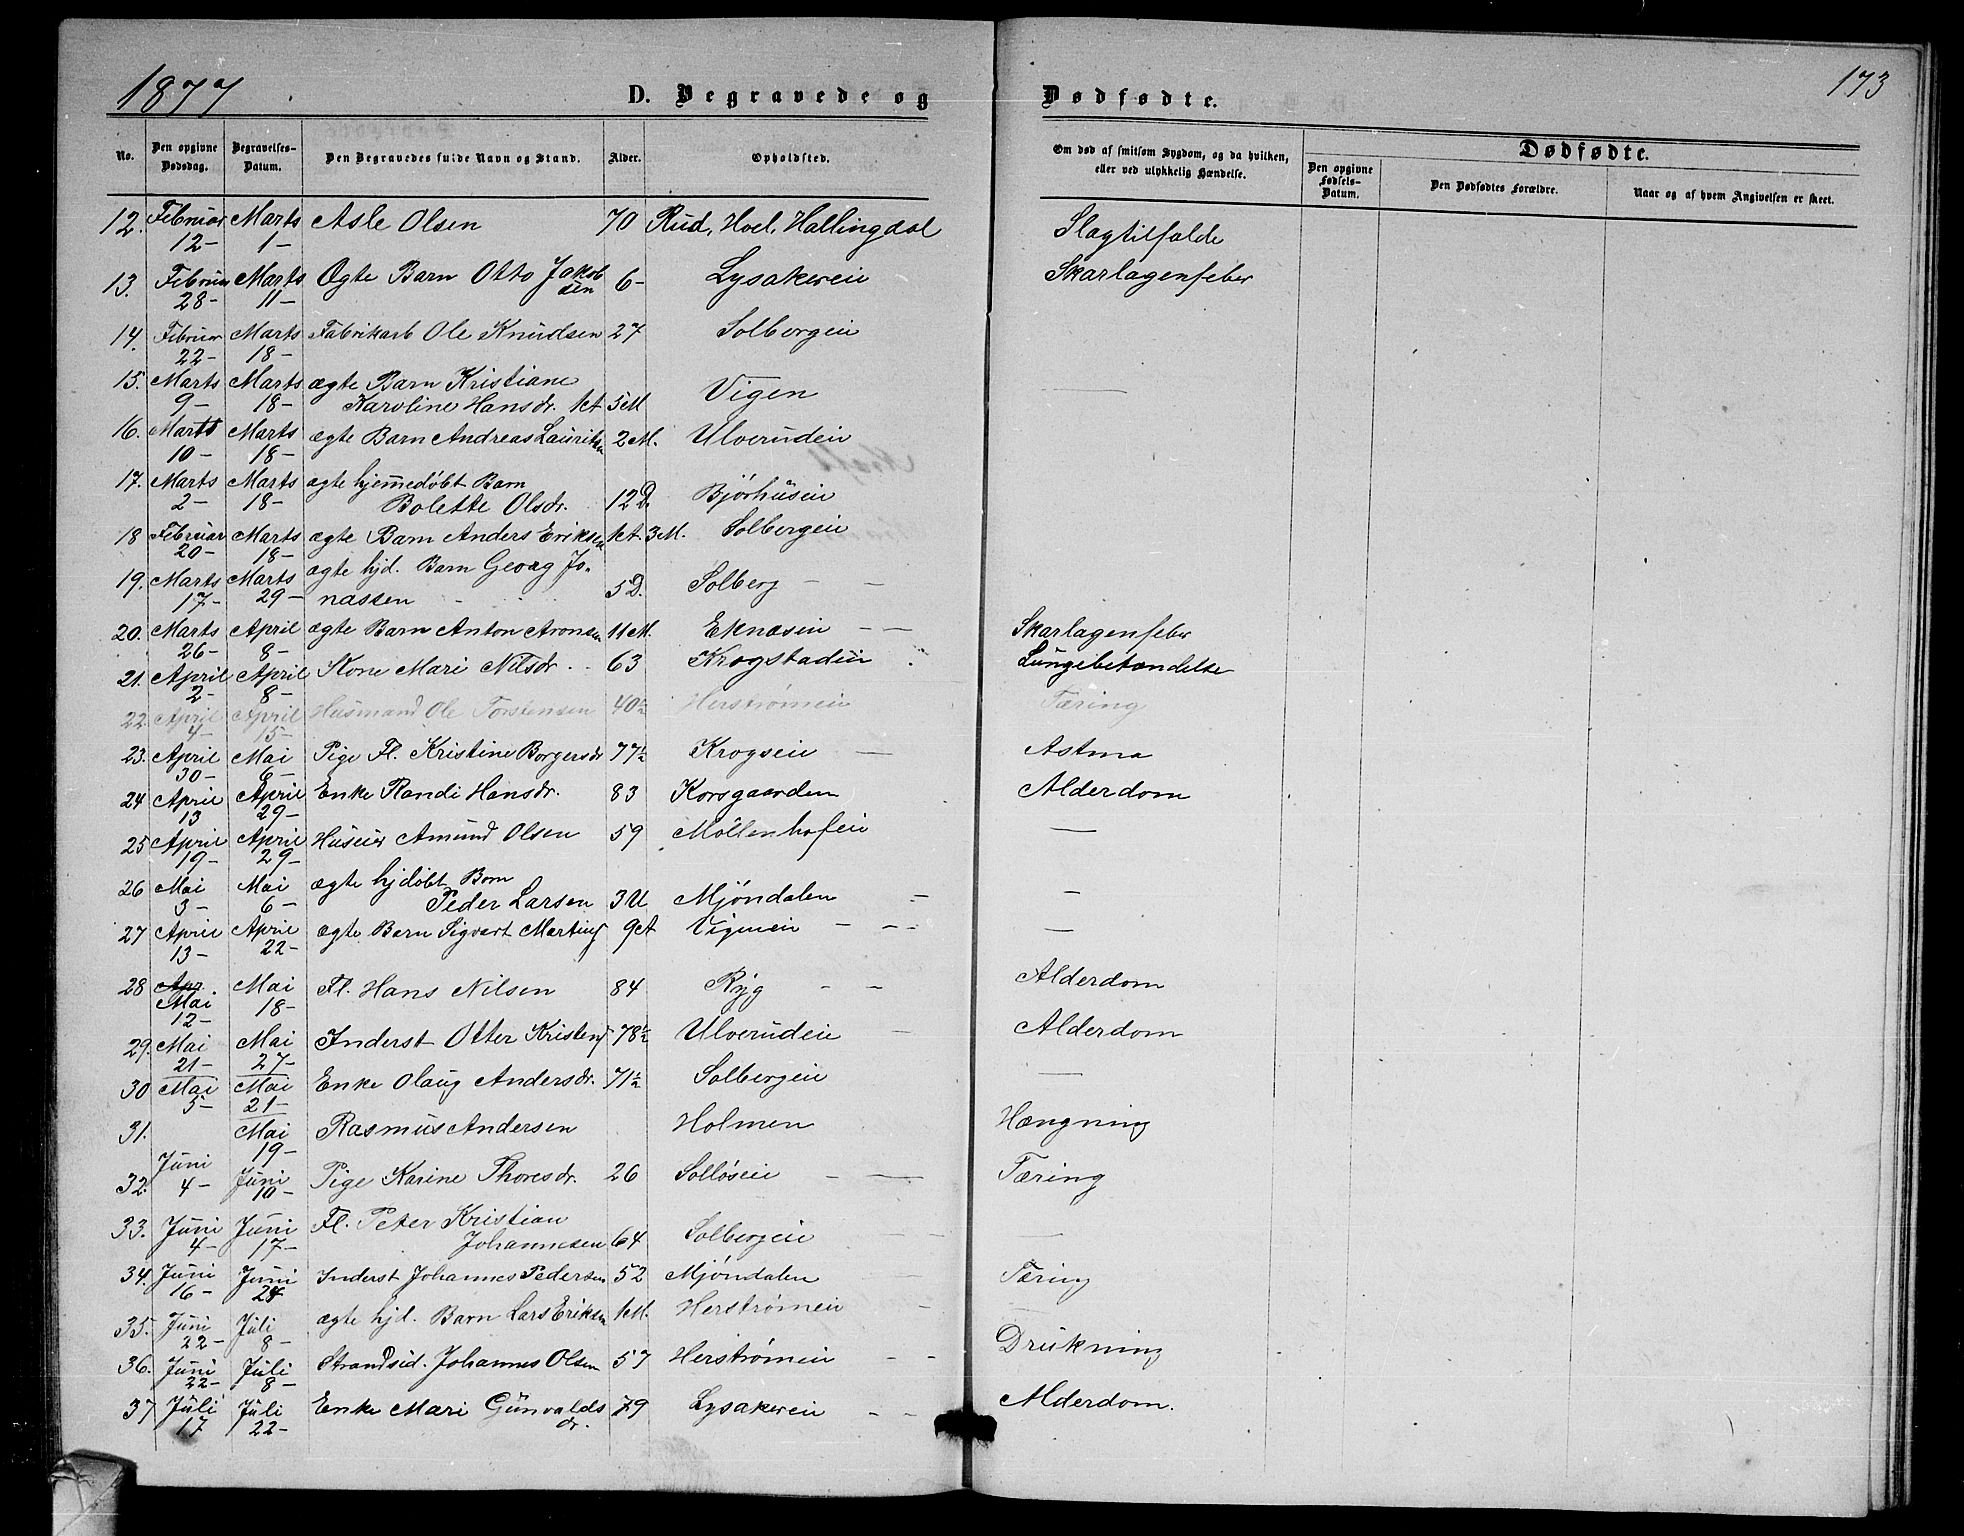 1877
D. Begravede og Dødfødte.
173
No. Den opgivne Dødsdag. Begravelses-Datum. Den Begravedes fulde Navn og Stand. Alder. Opholdsted. Om død af smitsom Sygdom, og da hvilken, eller ved ulykkelig Hændelse. Dødfødte.
Den opgivne Fødsels-Datum. Den Dødfødtes Forældre. Naar og af hvem Angivelsen er skeet.
12. Februar 12- Marts 1- Asle Olsen 70 Rud, Hoel, Hallingdal Slagtilfælde
13. Februar 28- Marts 11- Ægte Barn Otto Jakobsen 6- Lysakereie Skarlagenfeber
14. Februar 22- Marts 18- Fabrikarb Ole Knudsen 27 Solbergeie
15. Marts 9- Marts 18- ægte Barn Kristiane
Karoline Hansdr. 1 A 5 M Vigen —
16. Marts 10- Marts 18- ægte Barn Andreas Lauritsen 2 M. Ulverudeie
17. Marts 2- Marts 18- ægte hjemmedøbt Barn
Bolette Olsdr. 12 D. Bjørhuseie
18 Februar 20- Marts 18- ægte Barn Anders Eriksen 1 A. 3 M. Solbergeie
19. Marts 17- Marts 29- ægte hjd. Barn Georg Jo-
nassen 5 D. Solberg - -
20. Marts 26- April 8- ægte Barn Anton Aronsen 11 M. Eknæseie - - Skarlagenfeber
21. April 2- April 8- Kone Mari Nilsdr. 63 Krogstadeie Lungebetændelse
22. April 4- April 15- Husmand Ole Torstensen 40½ Herstrømeie Tæring
23. April 30- Mai 6- Pige Fl. Kristine Borgersdr 77½ Krogseie — Astma
24 April 13 April 29- Enke Randi Hansdr. 83 Korsgaarden Alderdom
25 April 19- April 29- Huseier Amund Olsen 59 Møllenhofeie —
26 Mai 3- Mai 6- ægte hjdøbt Barn
Peder Larsen 3 U Mjøndalen - —
27 April 13- April 22- ægte Barn Sigvart Martins 9 A Vigeneie - - - —
28 Apr. Mai 12- Mai 18- Fl. Hans Nilsen 84 Ryg - - Alderdom
29. Mai 21- Mai 27- Inderst Otter Kristens 78½ Ulverudeie - Alderdom
30 Mai 5- Mai 21- Enke Olaug Andersdr. 71½ Solbergeie —
31. Mai 19- Rasmus Andersen Holmen Hængning
32. Juni 4- Juni 10- Pige Karine Thoresdr. 26 Solløseie - — Tæring
33. Juni 4- Juni 17- Fl. Peter Kristian
Johannesen 64 Solbergeie - - —
34. Juni 16- Juni 24 Inderst Johannes Pedersen 52 Mjøndalen - Tæring
35. Juni 22- Juli 8- ægte hjd. Barn Lars Eriksen 1 M. Herstrømeie - —
36. Juni 22- Juli 8- Strandsid. Johannes Olsen 57 Herstrømeie - - Drukning
37 Juli 17 Juli 22- Enke Mari Gunvaldsdr. 79 Lysakereie - - Alderdom.